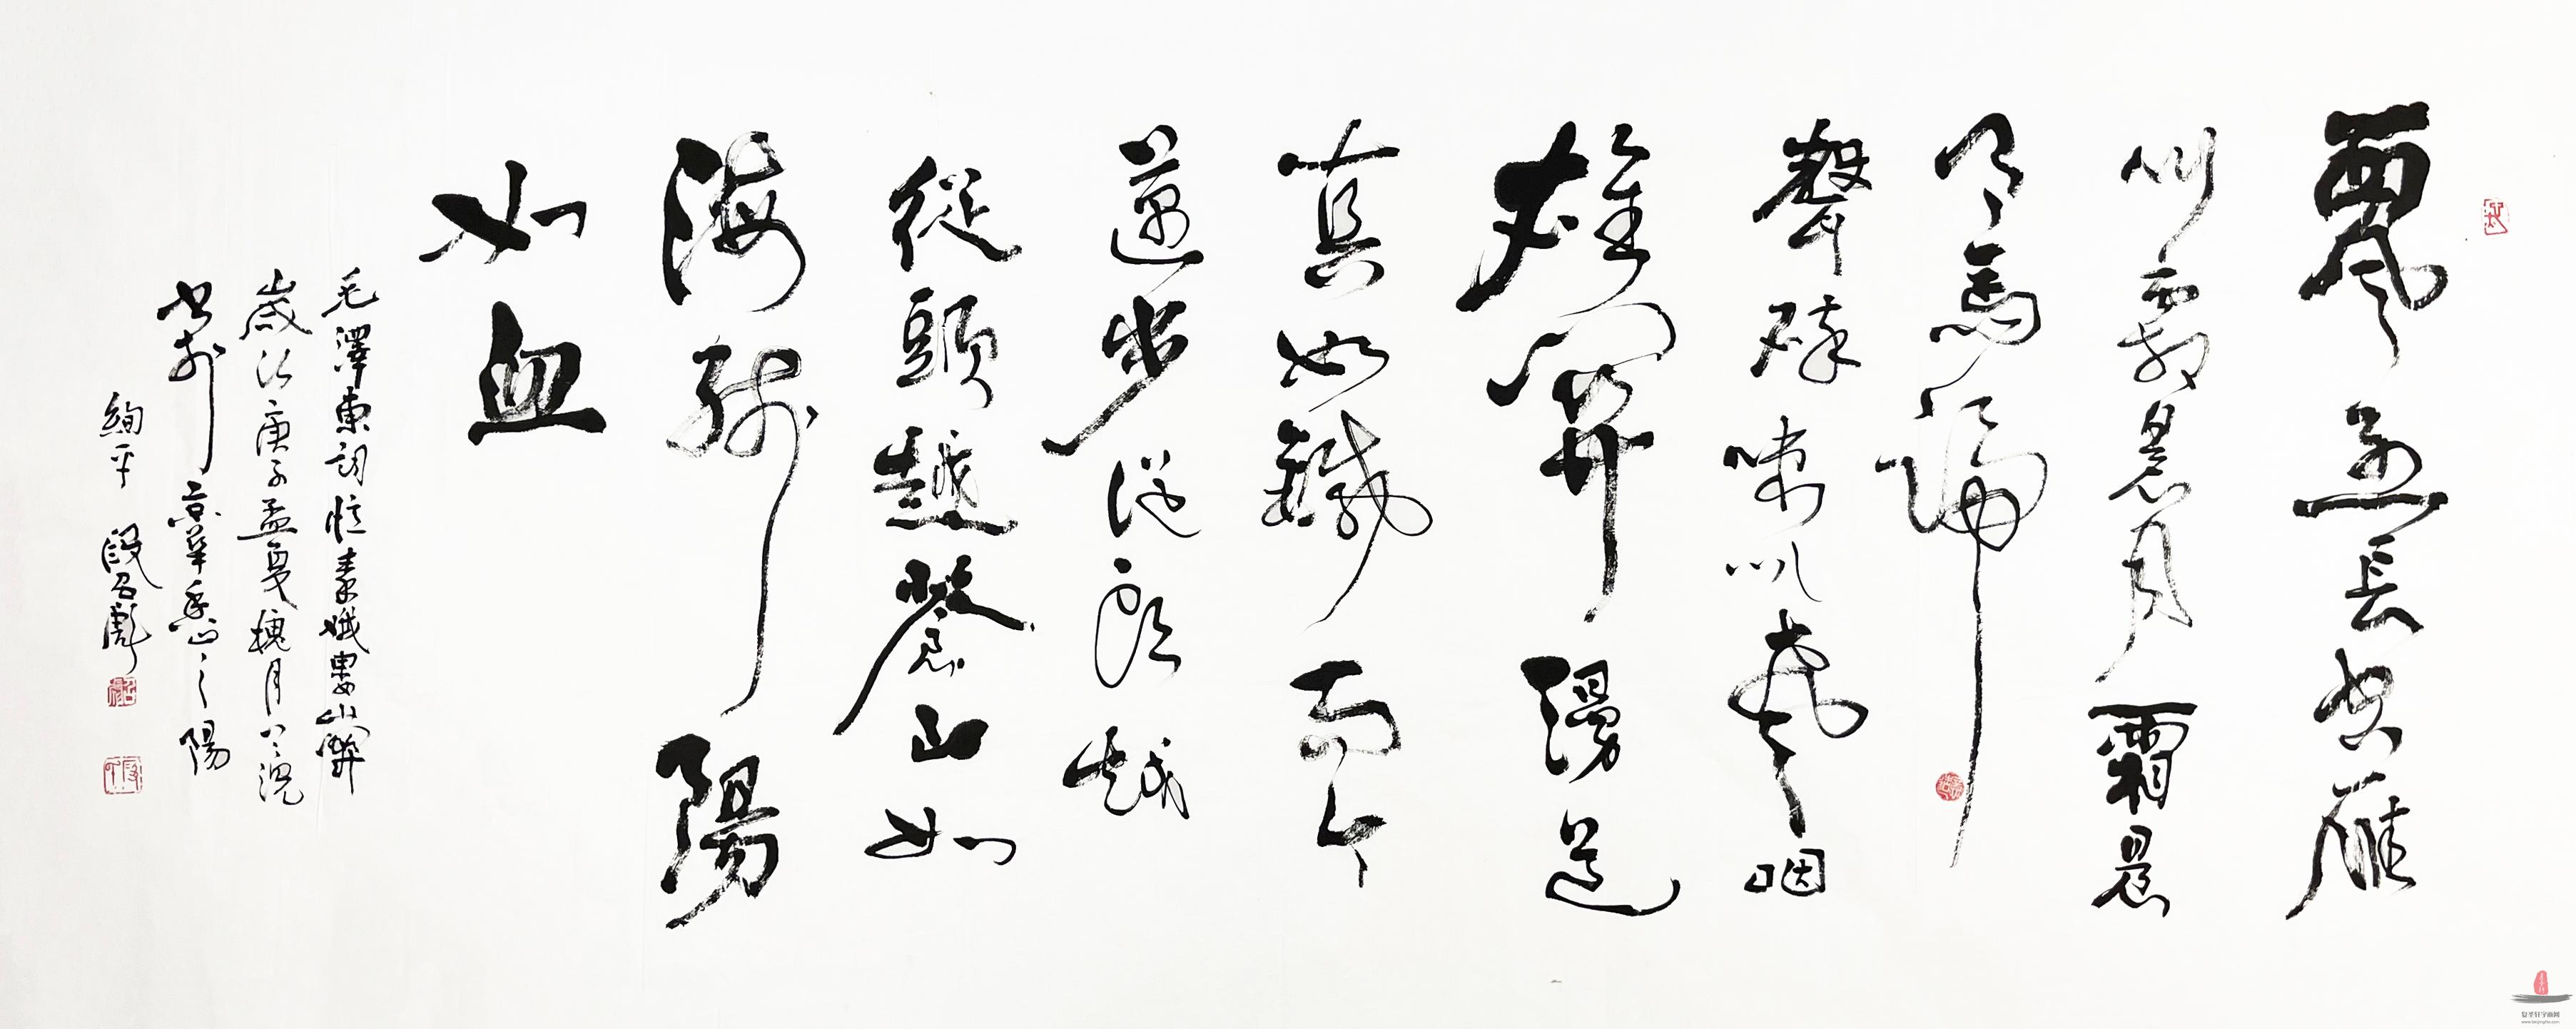 西風烈長空雁
叫霜晨月霜晨
月馬蹄
聲碎喇叭聲咽
雄關漫道
真如鐵而今
邁步從頭越
從頭越蒼山如
海殘陽
如血
毛澤東詞憶秦娥婁山關
歲次庚子孟夏槐月上浣
書於京華香山之陽
絢平 段召彪